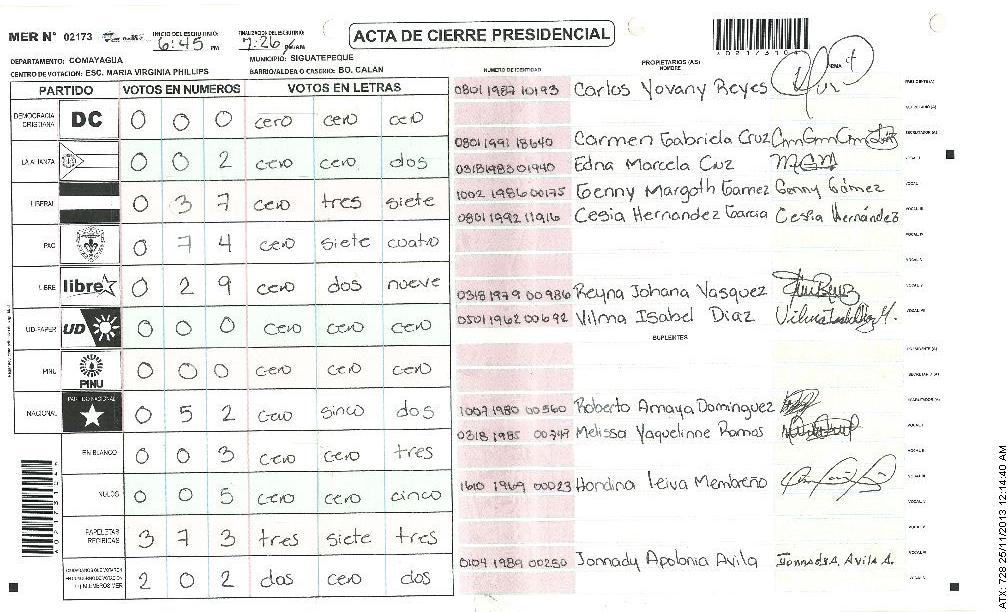 MER N° 02173
INICIO DEL ESCRUTINIO: 6:45 PM
FINALIZACION DEL ESCRUTINIO: 7:26 PM/AM
ACTA DE CIERRE PRESIDENCIAL
DEPARTAMENTO: COMAYAGUA
MUNICIPIO: SIGUATEPEQUE
CENTRO DE VOTACION: ESC. MARIA VIRGINIA PHILLIPS
BARRIO/ALDEA O CASERIO: BO. CALAN
PARTIDO VOTOS EN NUMEROS VOTOS EN LETRAS
DEMOCRACIA CRISTIANA DC 0 0 0 cero cero cero
LA ALIANZA 0 0 2 cero cero dos
LIBERAL 0 3 7 cero tres siete
PAC 0 7 4 cero siete cuatro
LIBRE libre 0 2 9 cero dos nueve
UD-FAPER UD 0 0 0 cero cero cero
PINU PINU 0 0 0 cero cero cero
NACIONAL PARTIDO NACIONAL 0 5 2 cero sinco dos
EN BLANCO 0 0 3 cero cero tres
NULOS 0 0 5 cero cero cinco
PAPELETAS RECIBIDAS 3 7 3 tres siete tres
2 0 2 dos cero dos
NUMERO DE IDENTIDAD
PROPIETARIOS (AS)
NOMBRE
FIRMA
0801 1987 10193 Carlos Yovany Reyes
0801 1991 18640 Carmen Gabriela Cruz
0318 1983 01940 Edna Marcela Cruz
1002 1986 00175 Genny Margoth Gamez Genny Gómez
0801 1992 11916 Cesia Hernandez Garcia Cesia Hernández
0318 1979 00986 Reyna Johana Vasquez
0501 1962 00692 Vilma Isabel Diaz
SUPLENTES
1007 1980 00560 Roberto Amaya Dominguez
0318 1985 00749 Melissa Yaquelinne Ramos
1610 1969 00023 Hondina Leiva Membreño
0104 1989 00250 Jonnady Apolonia Avila
ATX: 728 25/11/2013 12:14:40 AM